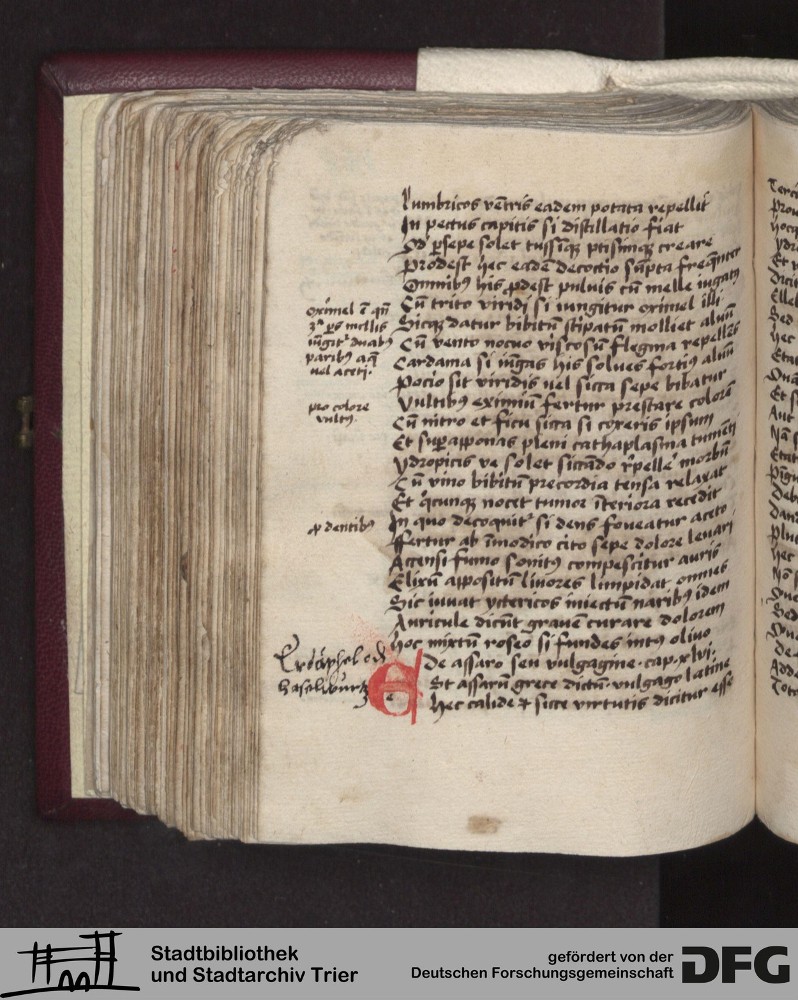 lumbricos vētris eadem potata repellit
In pectus capitis si distillatio fiat
Qd psepe solet tussimqȝ ptisimqȝ creare
Prodest hec eadē decoctio sūpta freqnter
Omnibꝰ his pdest puluis cū melle iugatꝰ
Cū trito viridi si iungitur oximel illi
Sicqȝ datur bibitū stipatū molliet aluū
Cū vento nocuo viscosū flegma repellēs
Cardama si iūgas his solues fortiꝰ aluū
Pocio sit viridis uel sicca sepe bibatur
Vultibꝰ eximiū fertur prestare colorē
Cū nitro et ficu sicca si coxeris ipsum
Et supapponas pleni cathaplasma tumēti
ydropicis ve solet siccādo rpelle morbū
Cū vino bibitū precordia tensa relaxat
Et qcunqȝ nocet tumor īteriora recedit
In quo decoquit si dens foueatur aceto
ffertur ab īmodico cito sepe dolore leuari
Accensi fumo sonitꝰ compescitur auris
Elixū appositū liuores limpidat omnes
Sic iuuat yctericos iniectū naribꝰ idem
Auricule dicūt grauē curare dolorem
hoc mixtū roseo si fundes intꝰ oliuo
De assaro seu vulgagine · cap · xlvi ·
Est assarū grece dictū vulgago latine
Hec calide et sicce virtutis dicitur esse
oximel ē qn
3ᵃ ps mellis
iūgit duabꝰ
paribꝰ aq
uel aceti ·
pro colore
vultꝰ
p dentibꝰ
haselwurtz
Terci
Prou
hocq
ydro
Et v
Dicit
Elleb
Sed
hec
Etat
Et s
Aut
Nā s
Etat
Pīgu
Deb
Dand
Plur
hec
Nā s
Sed
De a
Adde
Tota
Stadtbibliothek
und Stadtarchiv Trier
gefördert von der
Deutschen Forschungsgemeinschaft
DFG